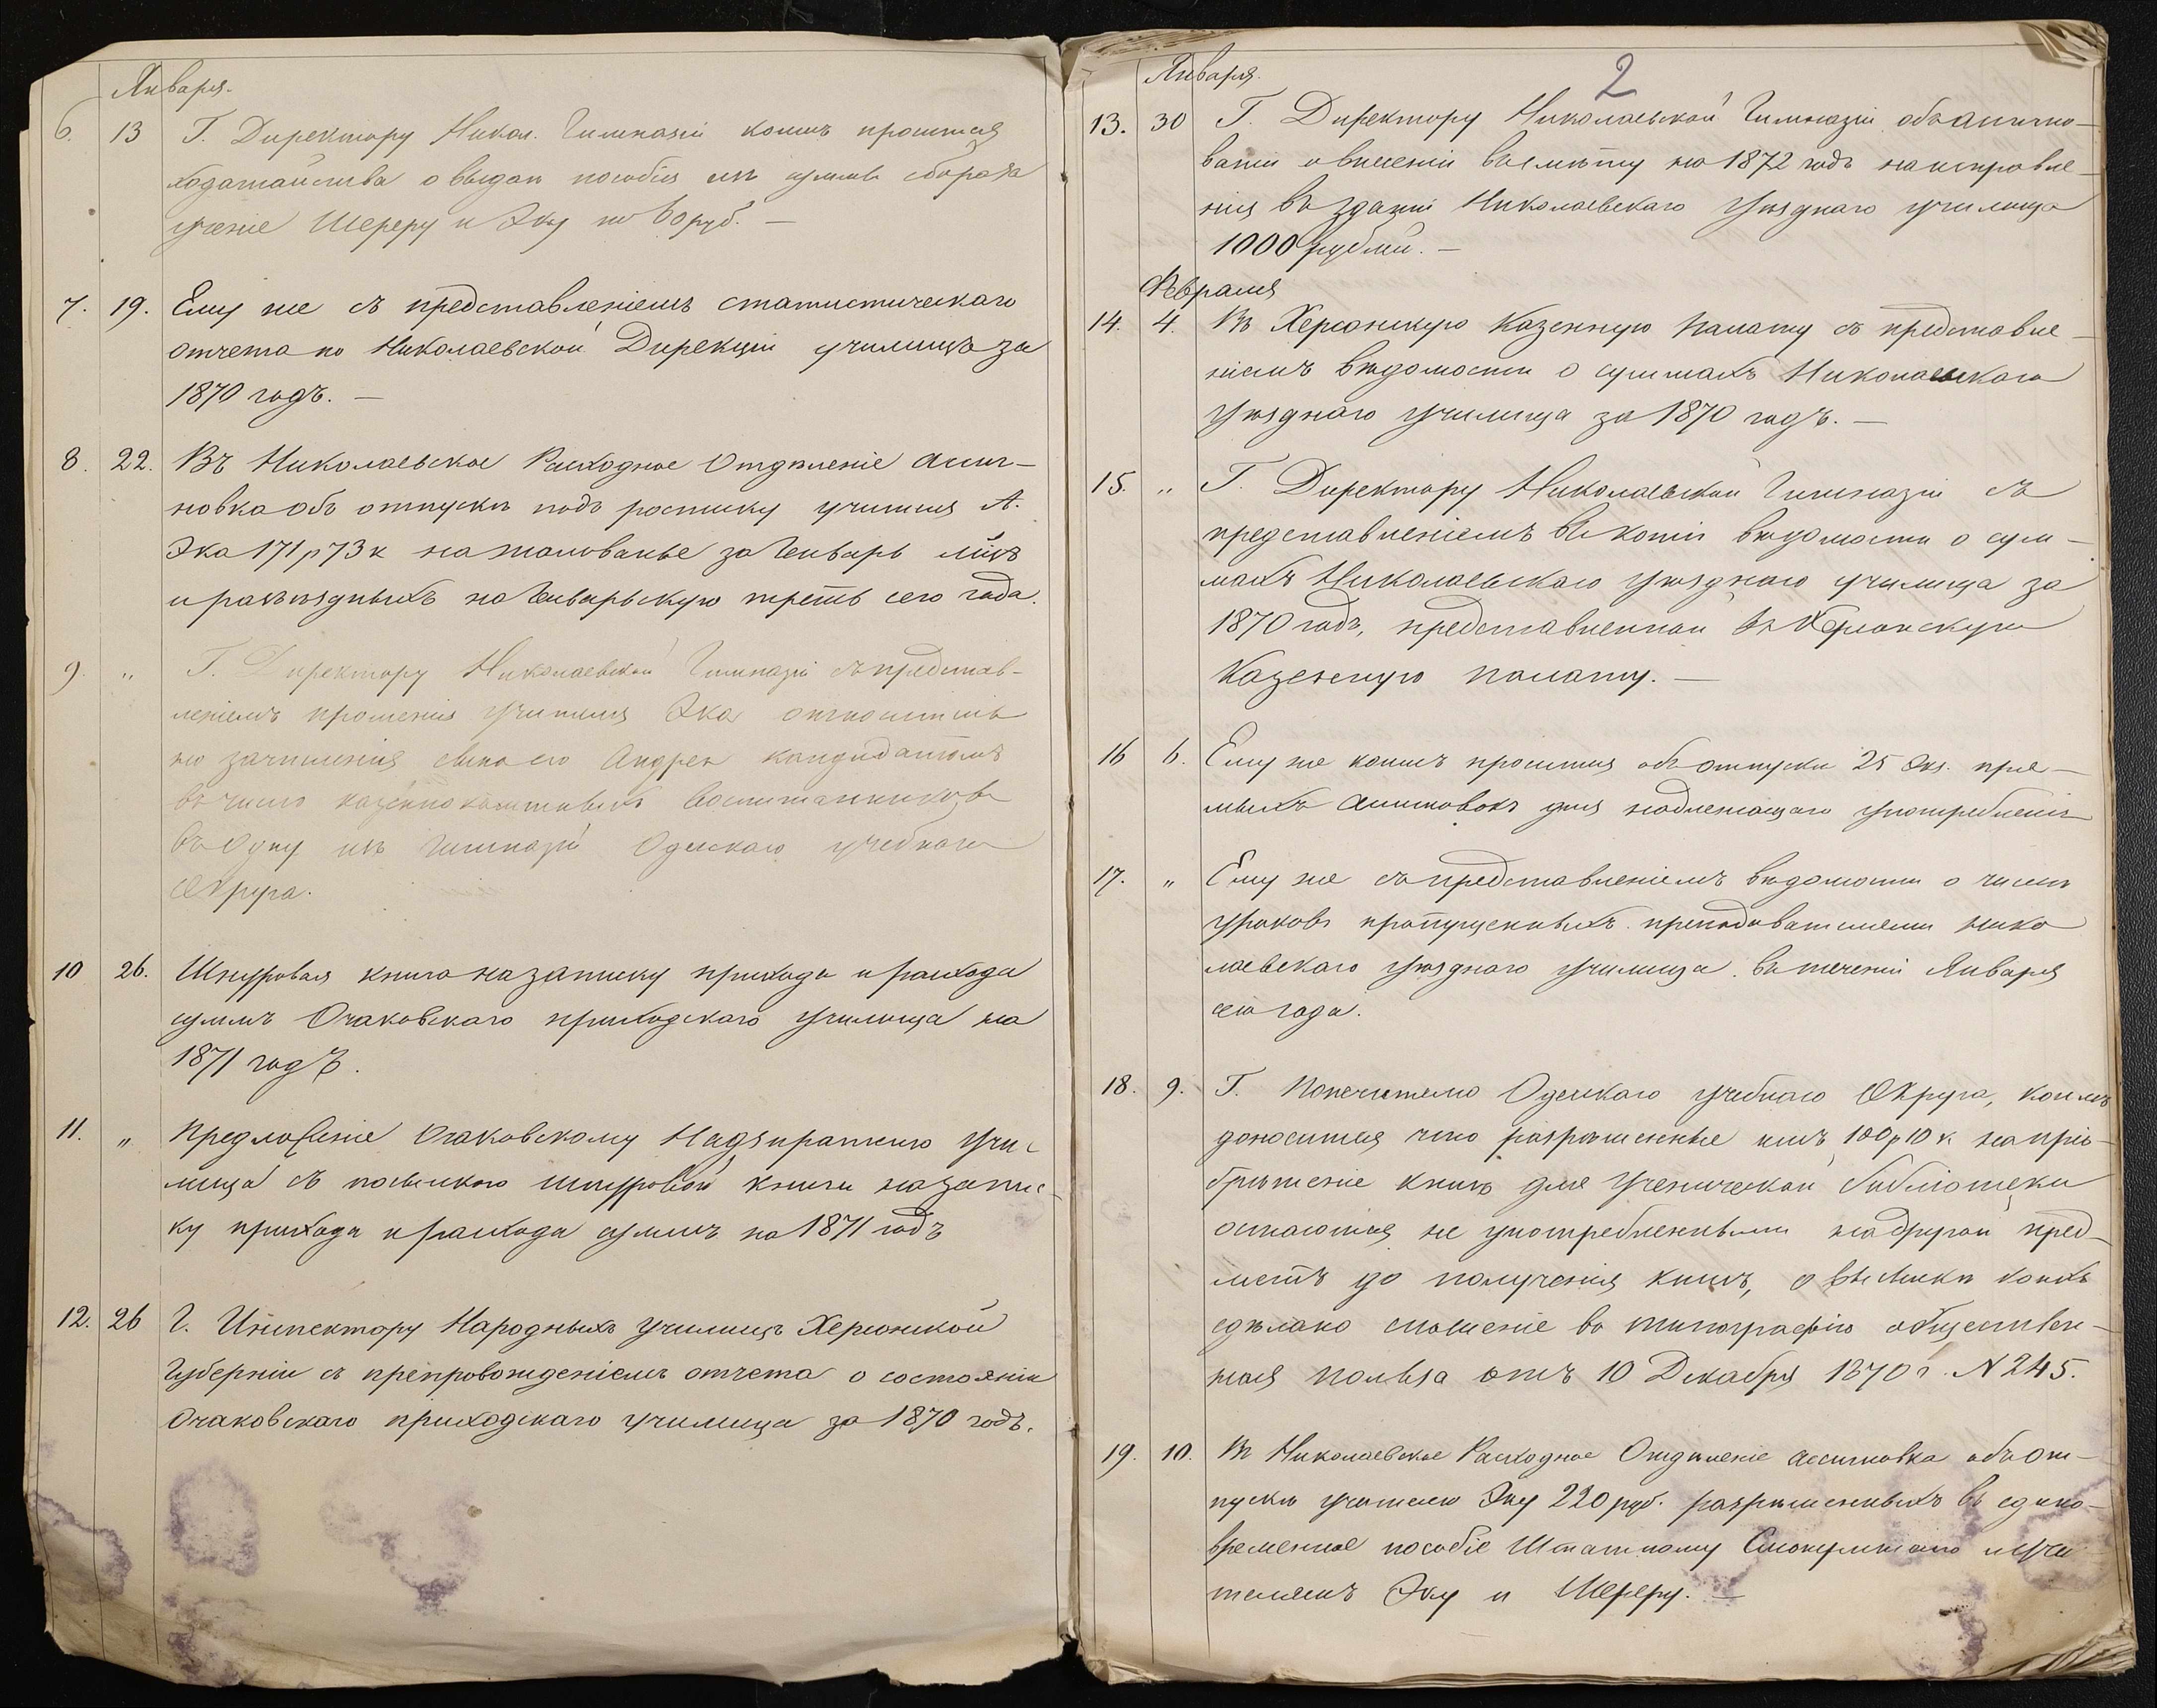 Января.
6. 13 Г. Директору Никол. Гимназіи коимъ просится
ходатайства о выдачѣ пособія изъ суммъ сбора за
ученіе Шереру и Эку по 60 руб. —
7. 19. Ему же съ представленіемъ статистическаго
отчета по Николаевской Дирекціи училищъ за
1870 годъ. —
8. 22. Въ Николаевское Расходное Отдѣленіе Ассиг-
новка объ отпускѣ подъ росписку учителя А.
Эка 171 р 73 к на жалованье за Генварь мѣцъ
и разъѣздныхъ на Генварьскую треть сего года.
9. „ Г. Директору Николаевской Гимназіи съ представ-
леніемъ прошенія учителя Эка относитель
но зачисленія сына его Андрея кандидатомъ
въ число казеннокоштныхъ воспитанниковъ
въ одну изъ Гимназій Одесскаго учебнаго
Округа.
10 26. Шнуровая книга на записку прихода и расхода
суммъ Очаковскаго приходскаго училища на
1871 годъ.
11. „ Предложеніе Очаковскому Надзирателю Учи-
лища съ посылкою шнуровой книги на запис-
ку прихода и расхода суммъ на 1871 годъ
12. 26 Г. Инспектору Народныхъ училищъ Херсонской
Губерніи съ препровожденіемъ отчета о состояніи
Очаковскаго приходскаго училища за 1870 годъ.
2
Января.
13. 30 Г. Директору Николаевской Гимназіи объ ассигно-
ваніи и внесеніи въ смѣту на 1872 годъ на исправле-
нія въ зданіи Николаевскаго Уѣзднаго училища
1000 рублей. —
Февраля
14. 4. Въ Херсонскую Казенную Палату съ представле-
ніемъ вѣдомости о суммахъ Николаевскаго
Уѣзднаго Училища за 1870 годъ. —
15. „ Г. Директору Николаевской Гимназіи съ
представленіемъ въ копіи вѣдомости о сум-
махъ Николаевскаго Уѣзднаго училища за
1870 годъ, представленной въ Херсонскую
Казенную палату. —
16 6. Ему же коимъ просится объ отпускѣ 25 экз. пря-
мыхъ ассигновокъ для надлежащаго употребленія
17. „ Ему же съ представленіемъ вѣдомости о числѣ
уроковъ пропущенныхъ преподавателями Нико
лаевскаго Уѣзднаго Училища въ теченіи Января
сего года.
18. 9. Г. Попечителю Одесскаго учебнаго Округа, коимъ
доносится что разрѣшенные имъ 100 р 10 к на прі-
обрѣтеніе книгъ для Ученической библіотеки
остаются не употребленными на другой пред-
метъ до полученія книгъ, о высылкѣ коихъ
сдѣлано сношеніе въ типографію обществен-
ная польза отъ 10 Декабря 1870 г. N 245.
19. 10. Въ Николаевское Расходное Отдѣленіе ассигновка объ от-
пускѣ учителю Эку 220 руб. разрѣшенныхъ въ едино-
временное пособіе Штатному Смотрителю и учи-
телямъ Эку и Шереру. —